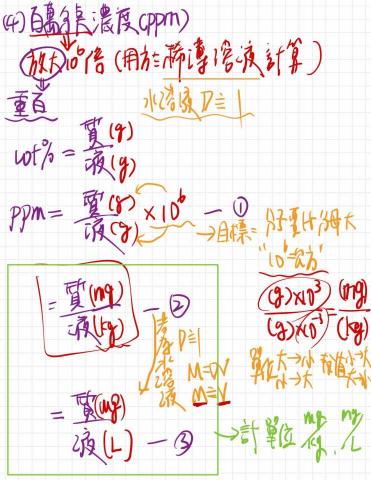 (4)百萬分點濃度(ppm)
放大10⁶倍(用於稀薄溶液計算)
重百
水溶液D≡1
wt% = 質(g)/液(g)
ppm = 質(g)/液(g) ×10⁶ — ①
→目標=分子要比分母大
"10⁶次方"
= 質(mg)/液(kg) — ②
(g)×10³/(g)×10⁻³ = (mg)/(kg)
單位大→小 數值小→大
小→大 大→小
若水溶液 D≡1
M=DV
M≡V
= 質(mg)/液(L) — ③
→計單位 mg/kg, mg/L